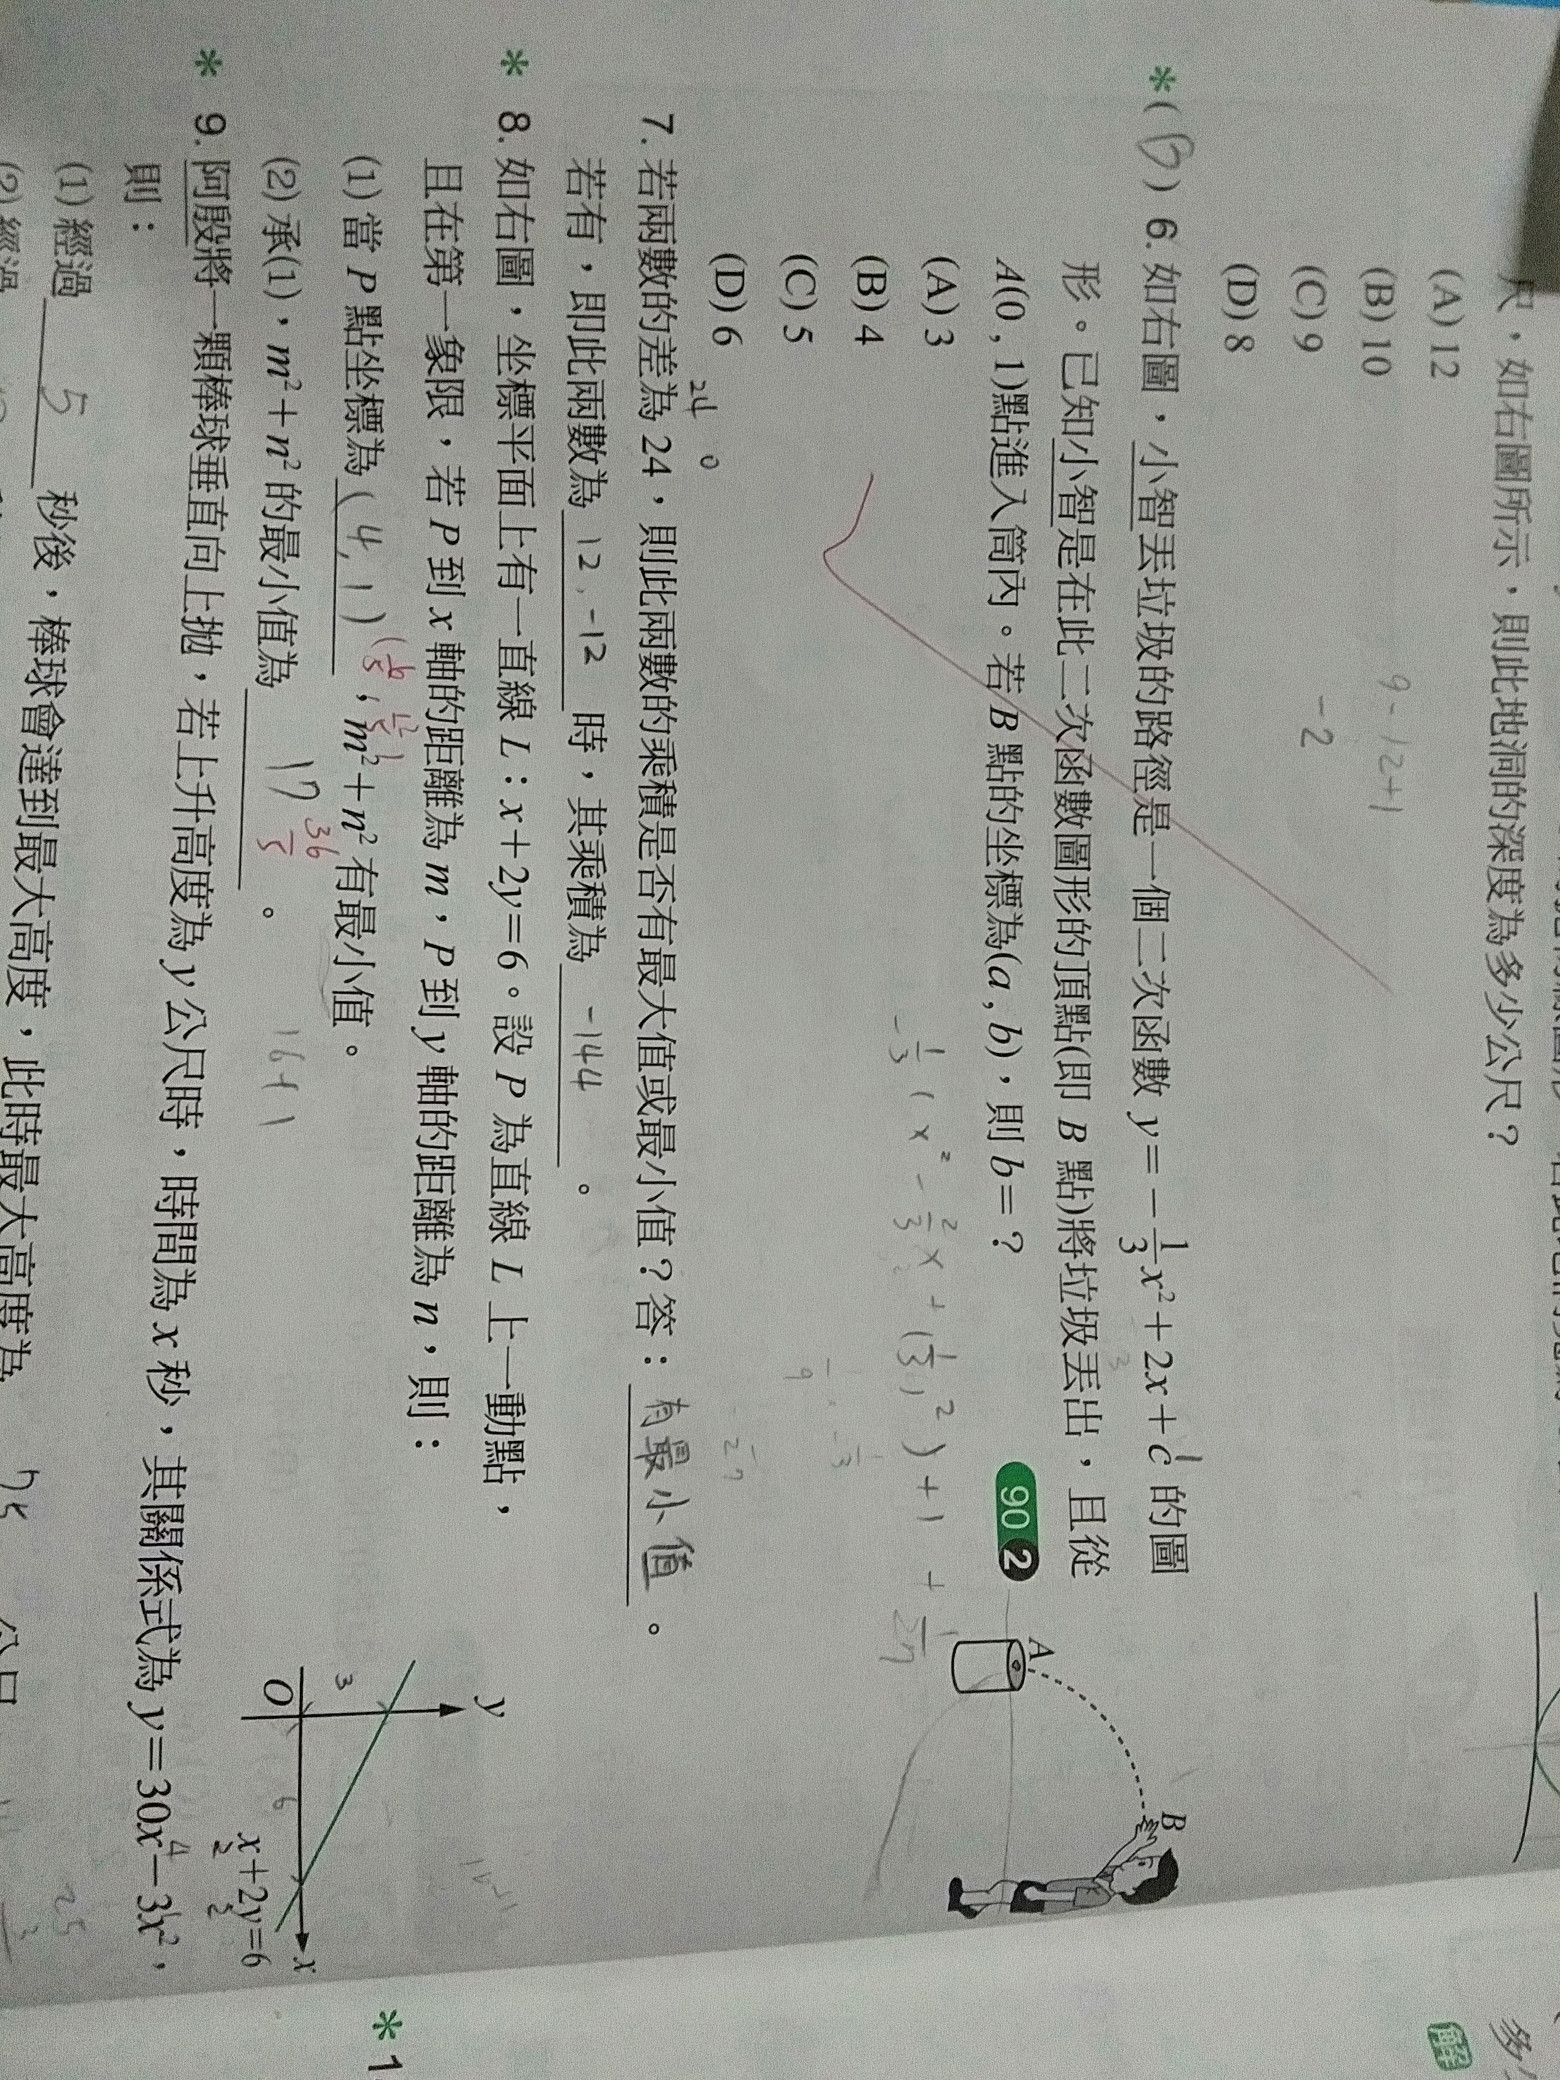 尺，如右圖所示，則此地洞的深度為多少公尺？
(A) 12
(B) 10
(C) 9
(D) 8
9-12+1
-2
*(B) 6. 如右圖，小智丟垃圾的路徑是一個二次函數 y=-1/3x²+2x+c 的圖
形。已知小智是在此二次函數圖形的頂點(即 B 點)將垃圾丟出，且從
A(0 , 1)點進入筒內。若 B 點的坐標為(a , b)，則 b=？ 90 2
(A) 3
(B) 4
(C) 5
(D) 6
-1/3(x²-2/3x+(1/3)²)+1+1/27
A
B
24 0
7. 若兩數的差為 24，則此兩數的乘積是否有最大值或最小值？答：有最小值。
若有，即此兩數為 12,-12 時，其乘積為 -144。
* 8. 如右圖，坐標平面上有一直線 L：x+2y=6。設 P 為直線 L 上一動點，
且在第一象限，若 P 到 x 軸的距離為 m，P 到 y 軸的距離為 n，則：
(1) 當 P 點坐標為 (4,1) (6/5, 12/5)，m²+n² 有最小值。
(2) 承(1)，m²+n² 的最小值為 17 36/5。
16+1
y
3
O
6
x
x+2y=6
* 9. 阿殷將一顆棒球垂直向上拋，若上升高度為 y 公尺時，時間為 x 秒，其關係式為 y=30x-3x²，
則：
(1) 經過 5 秒後，棒球會達到最大高度，此時最大高度為 75 公尺
(2) 經過
25
*1
解
多